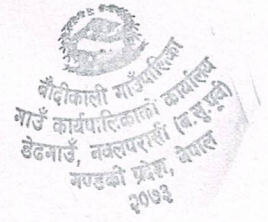 बौदीकाली गाउँपालिका
गाउँ कार्यपालिकाको कार्यालय
डेढगाउँ, नवलपरासी (ब.सु.पूर्व)
गण्डकी प्रदेश, नेपाल
२०७३